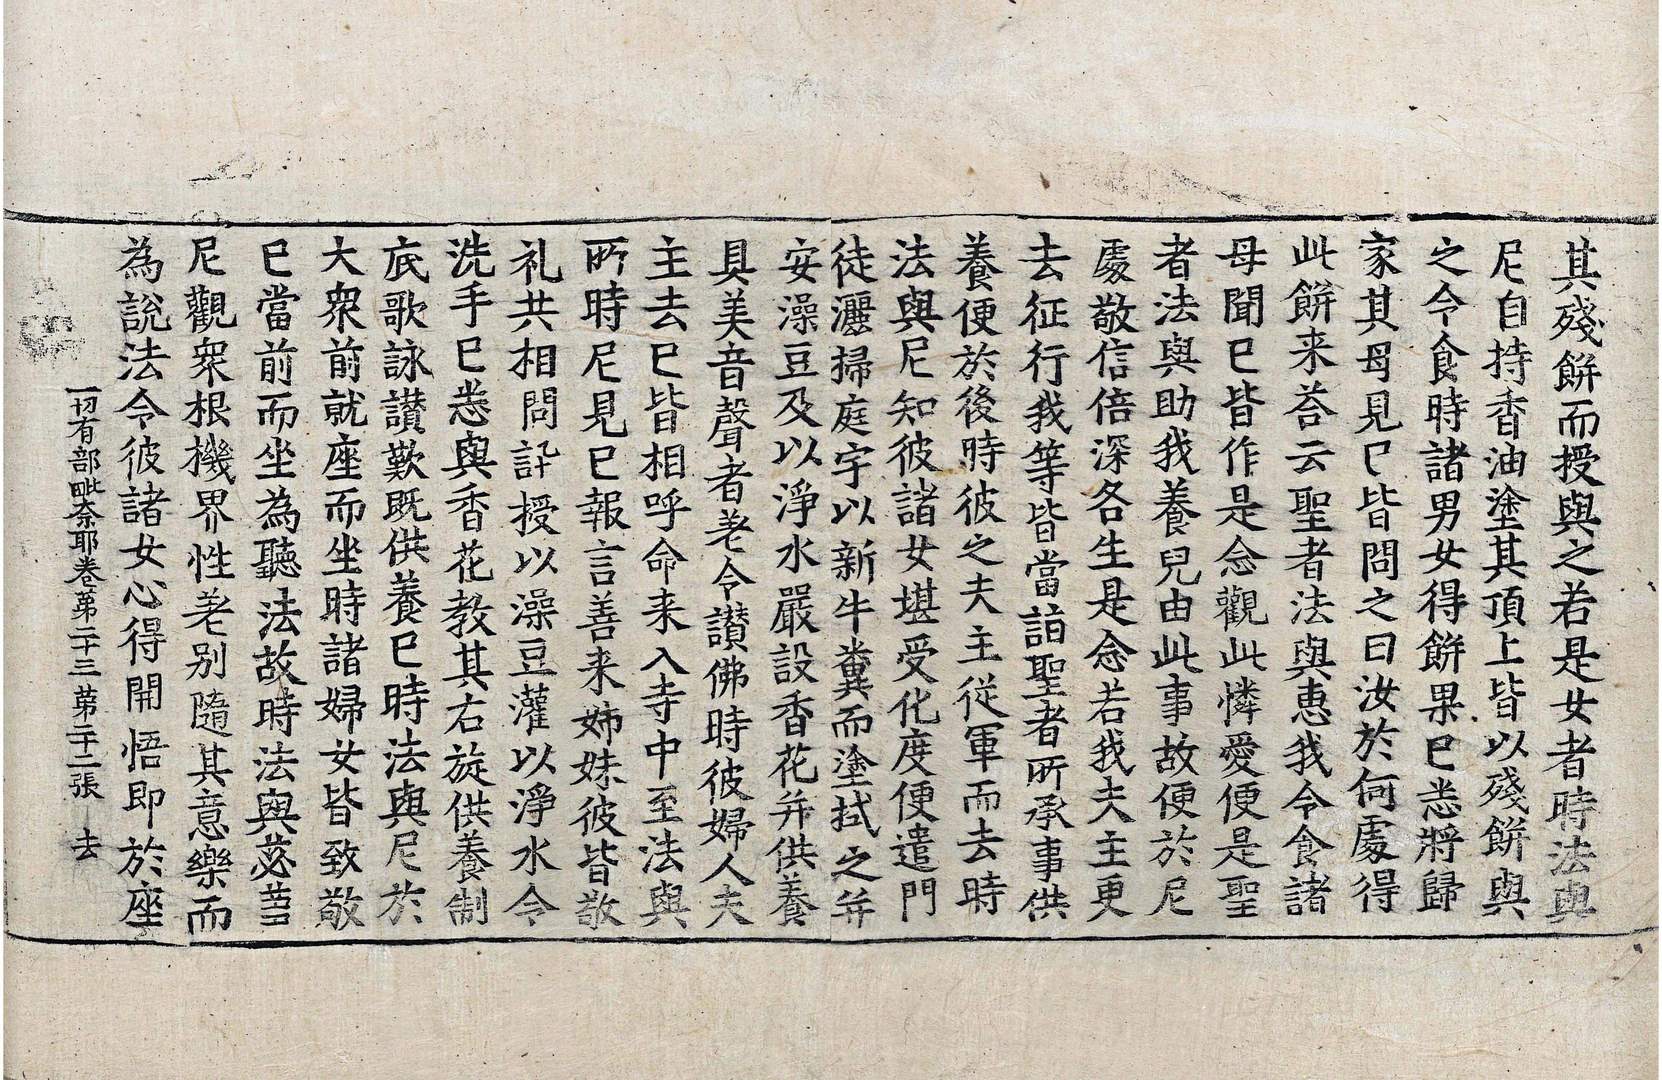 其殘餅而授與之若是女者時法與
尼自持香油塗其頂上皆以殘餅與
之令食時諸男女得餅果已悉將歸
家其母見已皆問之曰汝於何處得
此餅来荅云聖者法與惠我令食諸
母聞已皆作是念觀此憐愛便是聖
者法與助我養兒由此事故便於尼
處敬信倍深各生是念若我夫主更
去征行我等皆當詣聖者所承事供
養便於後時彼之夫主從軍而去時
法與尼知彼諸女堪受化度便遣門
徒灑掃庭宇以新牛糞而塗拭之并
安澡豆及以淨水嚴設香花并供養
具美音聲者差令讃佛時彼婦人夫
主去已皆相呼命来入寺中至法與
所時尼見已報言善来姊妹彼皆敬
礼共相問訊授以澡豆灌以淨水令
洗手已悉與香花教其右旋供養制
底歌詠讃歎既供養已時法與尼於
大衆前就座而坐時諸婦女皆致敬
已當前而坐為聽法故時法與苾蒭
尼觀衆根機界性差別隨其意樂而
為說法令彼諸女心得開悟即於座
一切有部毗奈耶卷第二十三 第二十二張 去